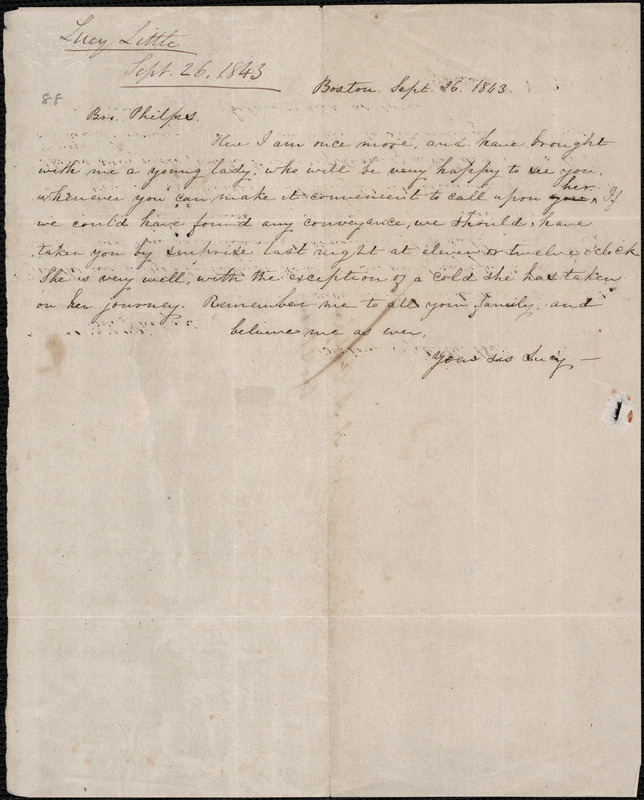 Lucy Little
Sept. 26. 1843
88
Boston. Sept. 26. 1843.
Bro. Phelps.
Here I am once more, and have brought
with me a young lady, who will be very happy to see you,
her
whenever you can make it convenient to call upon you. If
we could have found any conveyance, we should have
taken you by surprise last night at eleven or twelve o'clock.
She is very well, with the exception of a cold she has taken
on her journey. Remember me to all your family, and
believe me as ever,
Your sis Lucy —